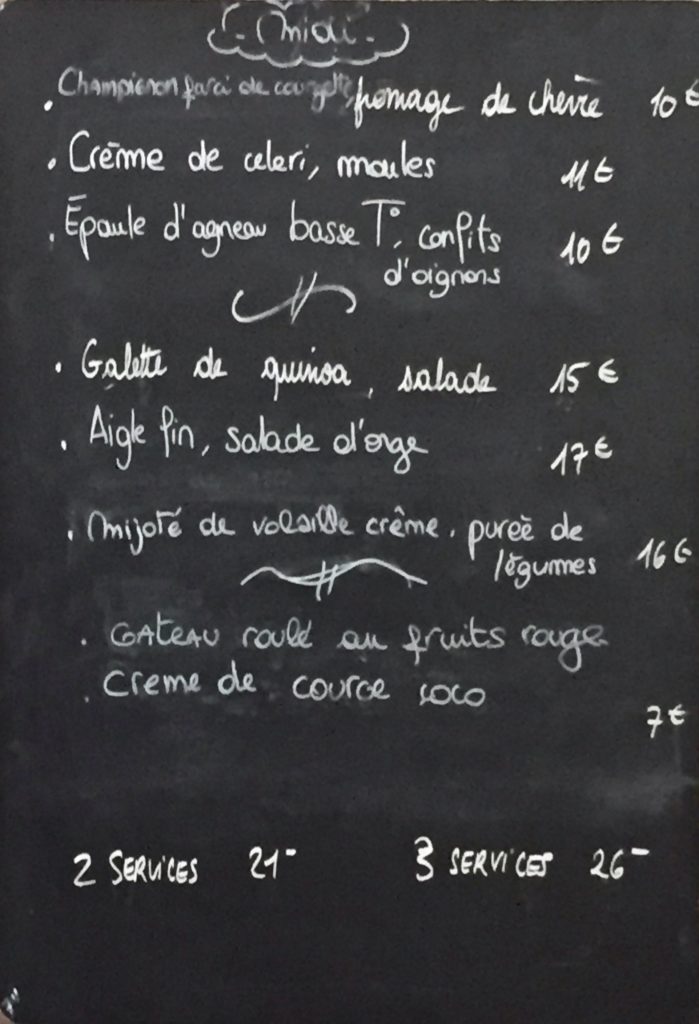 - Midi -
. Champignon farci de courgette, fromage de chèvre 10 €
. Crème de celeri, moules 11 €
. Épaule d'agneau basse T°, confits 10 €
d'oignons
. Galette de quinoa, salade 15 €
. Aigle fin, salade d'orge 17 €
. Mijoté de volaille crême, pureè de
légumes 16 €
. GATEAU roulé au fruits rouge
. Creme de cource coco
7 €
2 SERVICES 21- 3 SERVICES 26-